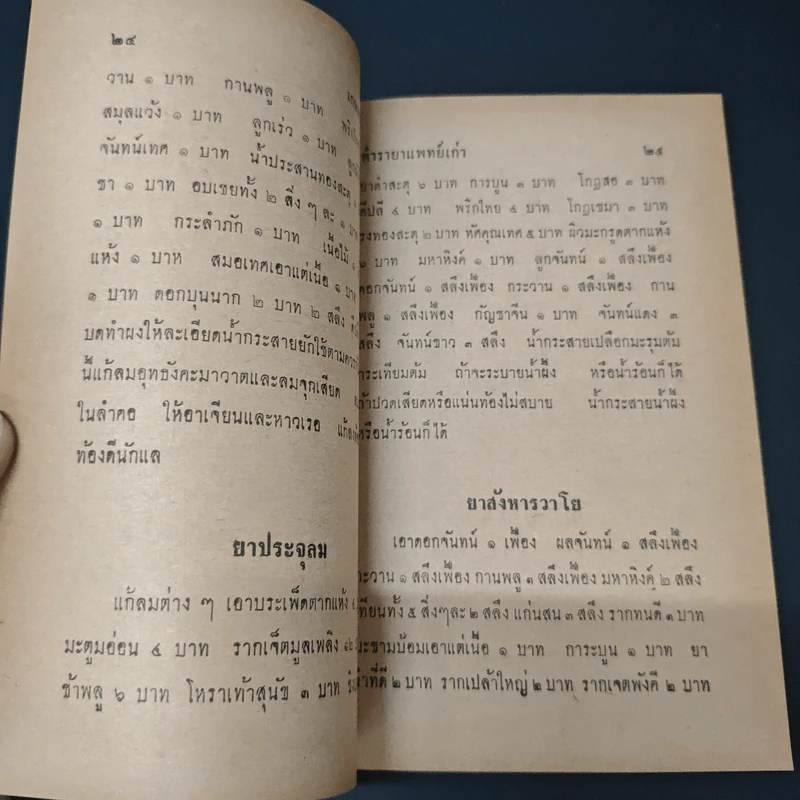 ๒๔
วาน ๑ บาท กานพลู ๑ บาท
สมุลแว้ง ๑ บาท ลูกเร่ว ๑ บาท
จันทน์เทศ ๑ บาท น้ำประสานทองสะตุ
ชา ๑ บาท อบเชยทั้ง ๒ สิ่ง ๆ ละ ๑
๑ บาท กระลำภัก ๑ บาท เนื้อไม้
แห้ง ๑ บาท สมอเทศเอาแต่เนื้อ ๑ บาท
๑ บาท ดอกบุนนาก ๒ บาท ๒ สลึง
บดทำผงให้ละเอียดน้ำกระสายยักใช้ตาม
นี้แก้ลมอุทธังคะมาวาตและลมจุกเสียด
ในลำคอ ให้อาเจียนและหาวเรอ
ท้องดีนักแล
ยาประจุลม
แก้ลมต่าง ๆ เอาบระเพ็ดตากแห้ง
มะตูมอ่อน ๔ บาท รากเจ็ตมูลเพลิง
ช้าพลู ๖ บาท โหราเท้าสุนัข ๓ บาท
ตำรายาแพทย์เก่า ๒๕
ยาดำสะตุ ๖ บาท การบูน ๓ บาท โกฎสอ ๓ บาท
ดีปลี ๔ บาท พริกไทย ๔ บาท โกฎเขมา ๓ บาท
รงทองสะตุ ๒ บาท หัศคุณเทศ ๕ บาท ผิวมะกรูดตากแห้ง
๑ บาท มหาหิงค์ ๑ บาท ลูกจันทน์ ๑ สลึงเฟื้อง
ดอกจันทน์ ๑ สลึงเฟื้อง กระวาน ๑ สลึงเฟื้อง กาน
พลู ๑ สลึงเฟื้อง กัญชาจีน ๑ บาท จันทน์แดง ๓
สลึง จันทน์ขาว ๓ สลึง น้ำกระสายเปลือกมะรุมต้ม
กระเทียมต้ม ถ้าจะระบายน้ำผึ้ง หรือน้ำร้อนก็ได้
ถ้าปวดเสียดหรือแน่นท้องไม่สบาย น้ำกระสายน้ำผึ้ง
หรือน้ำร้อนก็ได้
ยาสังหารวาโย
เอาดอกจันทน์ ๑ เฟื้อง ผลจันทน์ ๑ สลึงเฟื้อง
กะวาน ๑ สลึงเฟื้อง กานพลู ๑ สลึงเฟื้อง มหาหิงค์ ๒ สลึง
เทียนทั้ง ๕ สิ่งๆละ ๒ สลึง แก่นสน ๓ สลึง รากทนดี ๑ บาท
มะขามป้อมเอาแต่เนื้อ ๑ บาท การะบูน ๑ บาท ยา
ดำที่ดี ๒ บาท รากเปล้าใหญ่ ๒ บาท รากเจตพังคี ๒ บาท